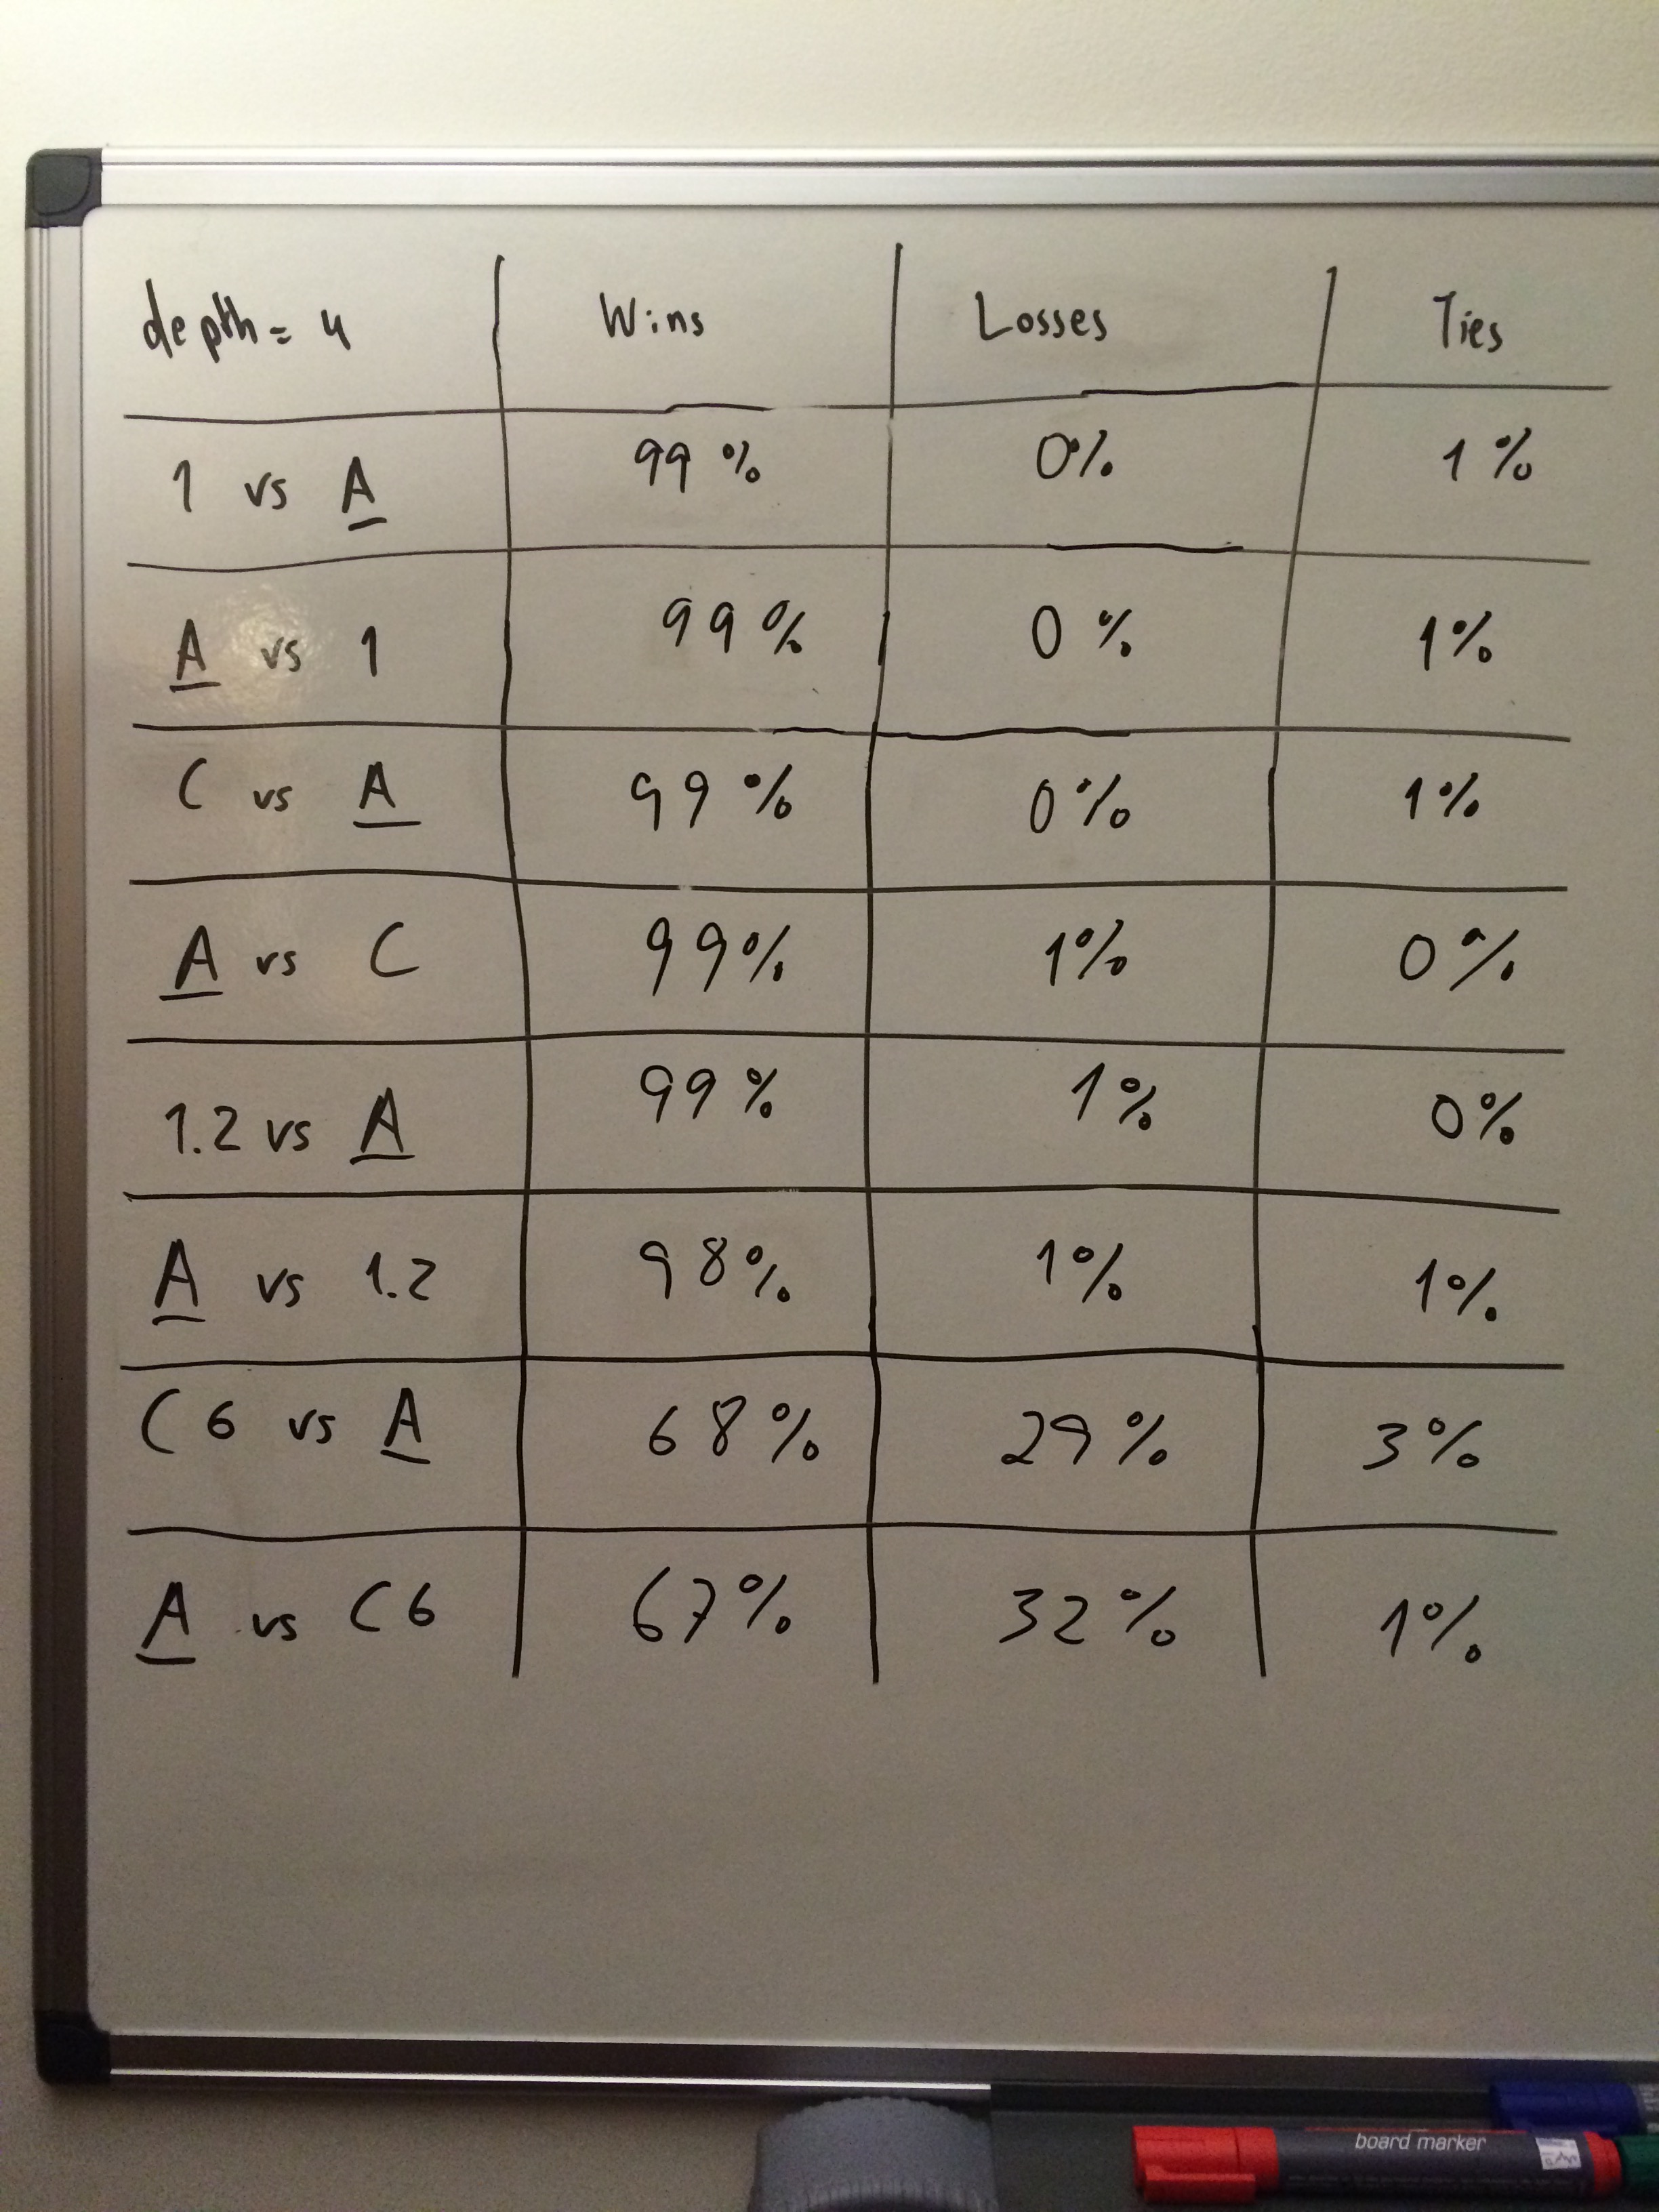 depth = 4 Wins Losses Ties
1 vs A 99% 0% 1%
A vs 1 99% 0% 1%
C vs A 99% 0% 1%
A vs C 99% 1% 0%
1.2 vs A 99% 1% 0%
A vs 1.2 98% 1% 1%
C6 vs A 68% 29% 3%
A vs C6 67% 32% 1%
board marker